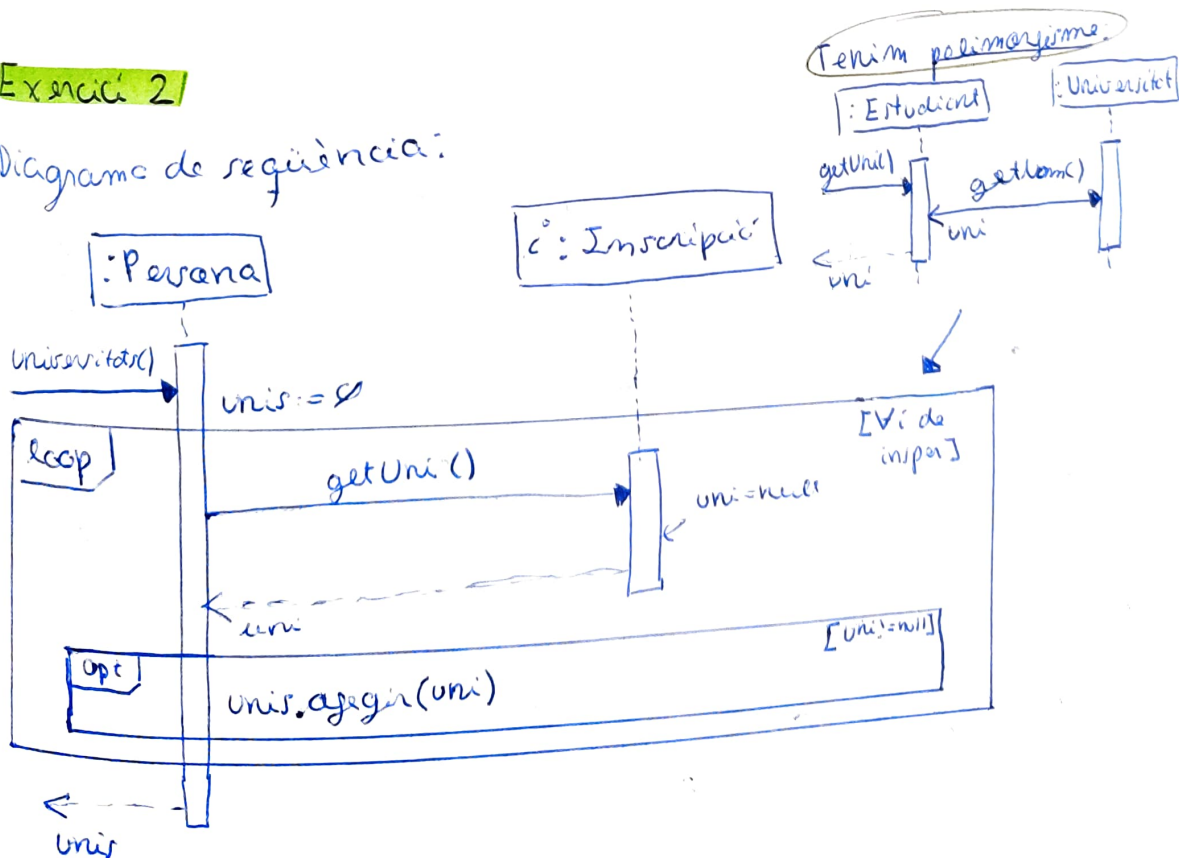 Exercici 2
Diagrama de seqüència:
Tenim polimorfisme.
: Estudiant
: Universitat
getUni()
getNom()
uni
uni
: Persona
i : Inscripció
universitats()
unis := ∅
loop
[∀i de
insper]
getUni()
uni=null
uni
opt
[uni!=null]
unis.afegir(uni)
unis